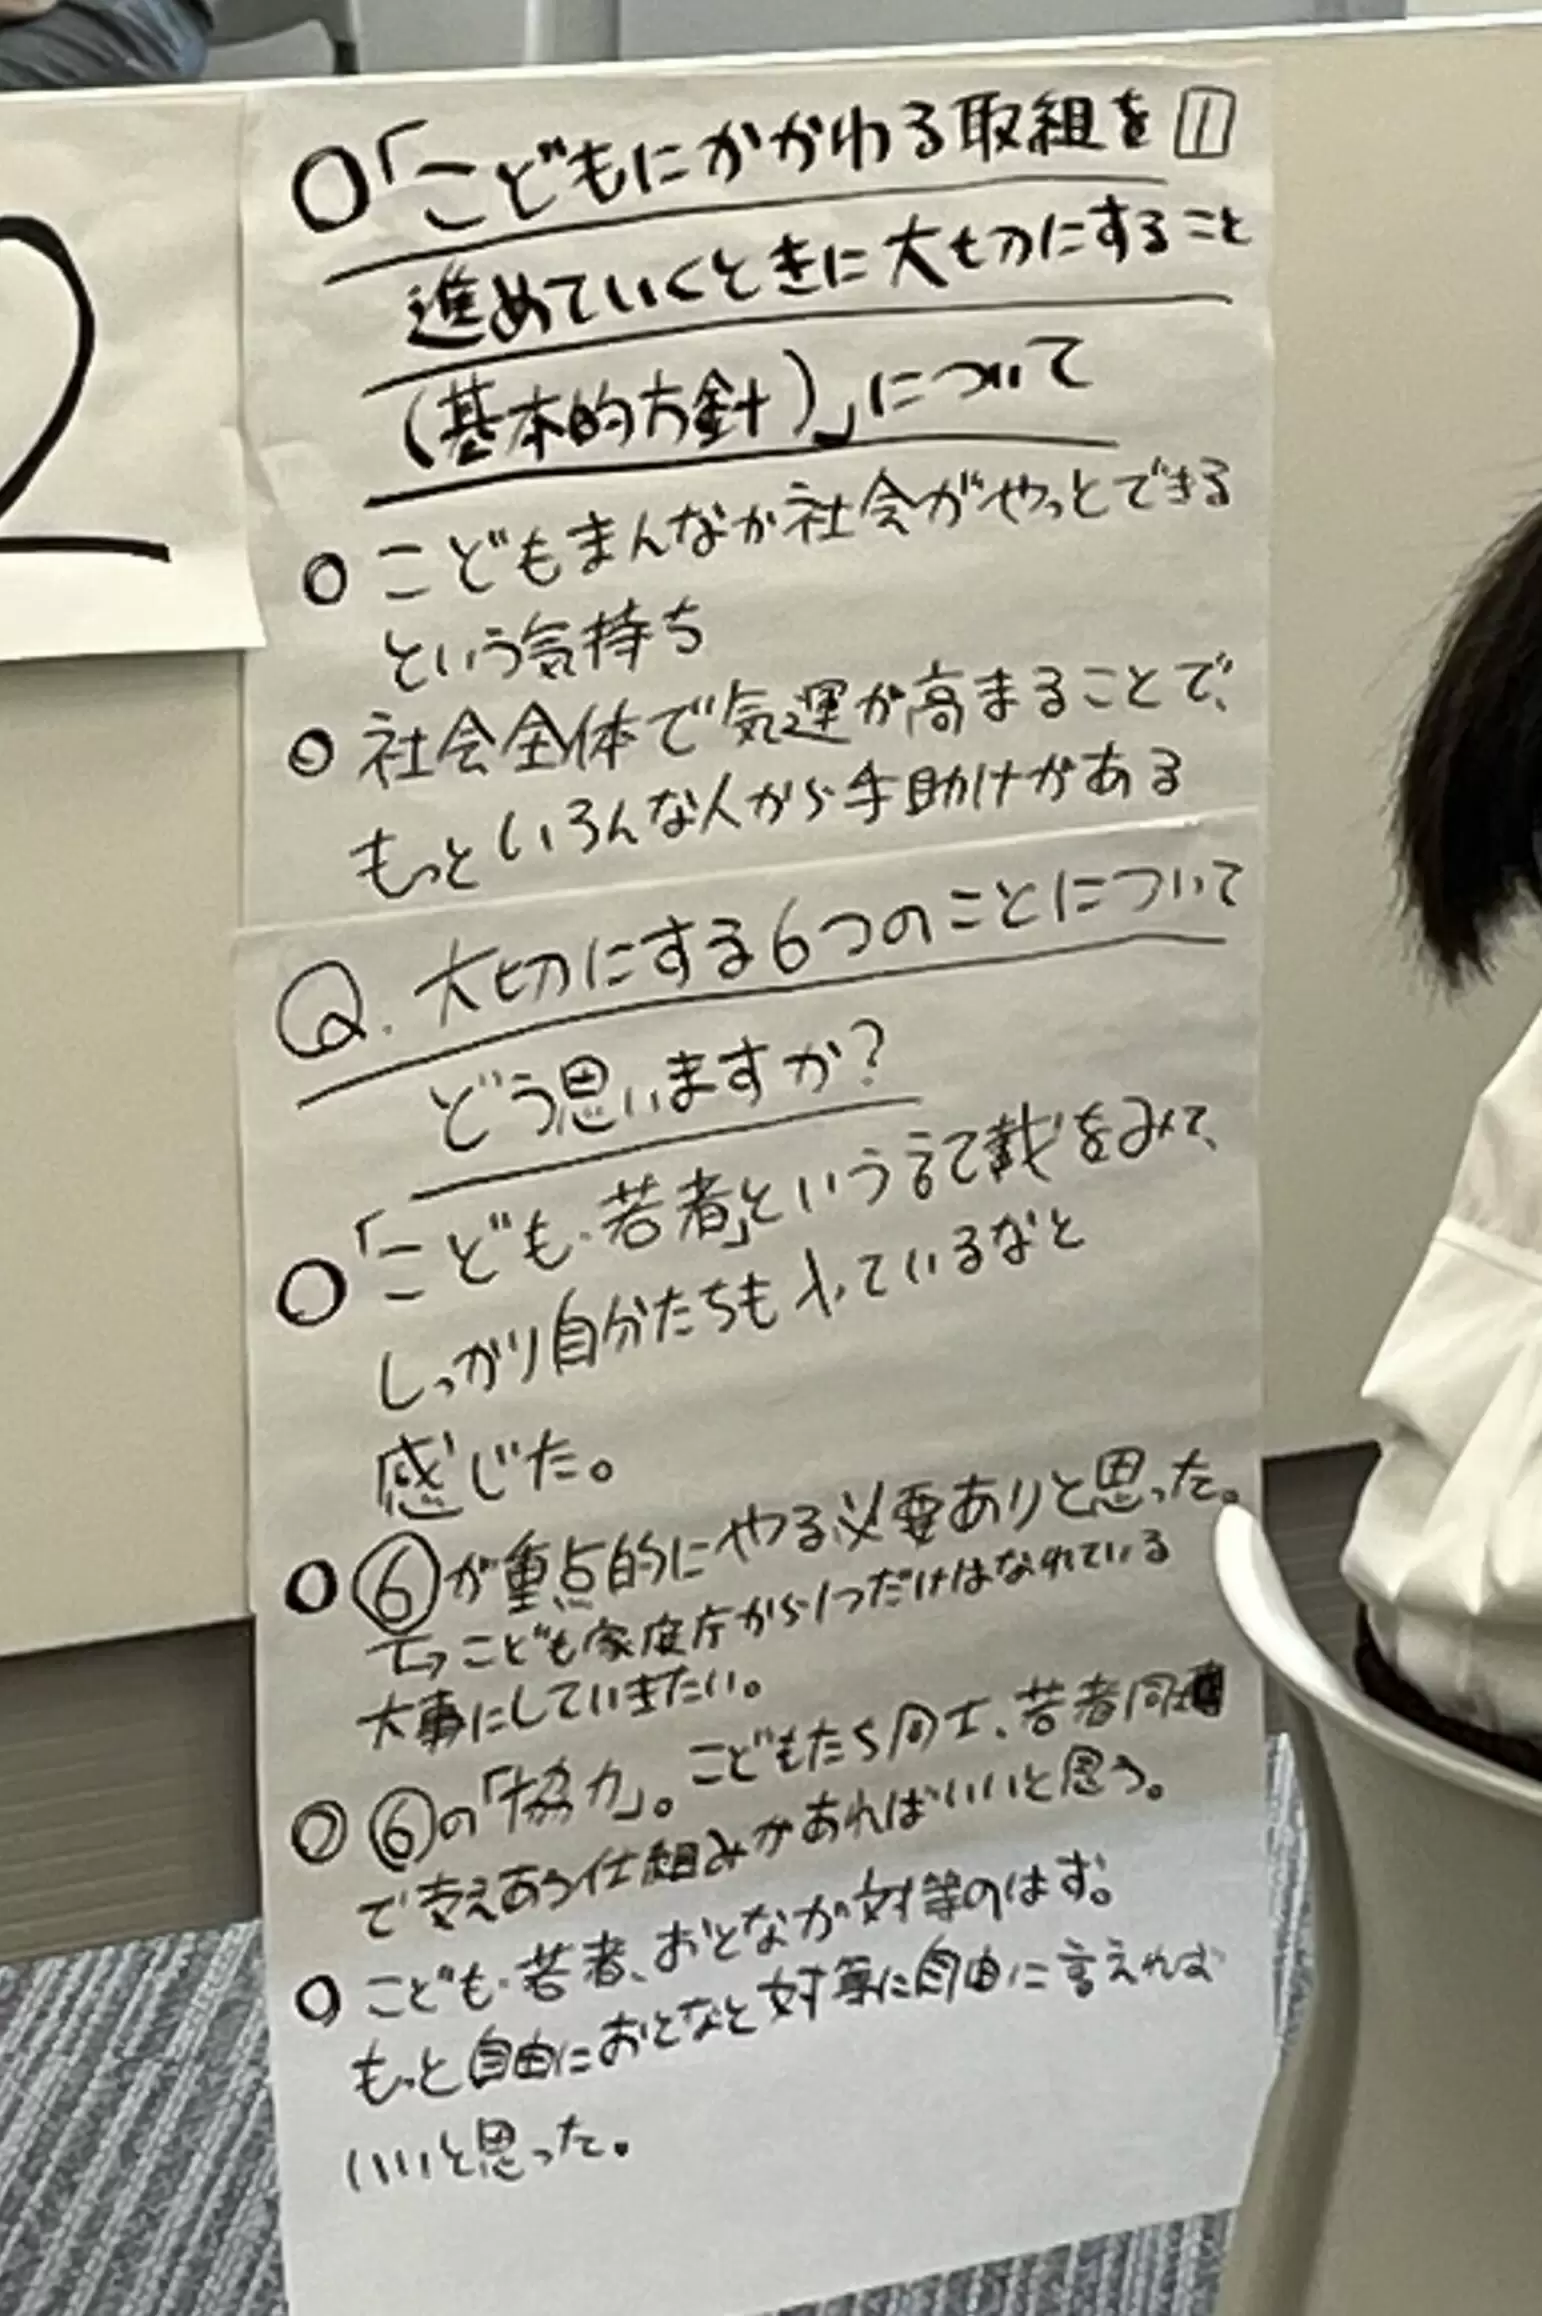 2
○「こどもにかかわる取組を 1
進めていくときに大切にすること
(基本的方針)」について
○ こどもまんなか社会がやっとできる
という気持ち
○ 社会全体で気運が高まることで、
もっといろんな人から手助けがある
Q. 大切にする6つのことについて
どう思いますか?
○「こども・若者」という記載をみて、
しっかり自分たちも入っているなと
感じた。
○ ⑥が重点的にやる必要ありと思った。
↳こども家庭庁から1つだけはなれている
大事にしていきたい。
○ ⑥の「協力」。こどもたち同士、若者同士
で支えあう仕組みがあればいいと思う。
○ こども・若者、おとなが対等のはず。
もっと自由におとなと対等に自由に言えれば
いいと思った。